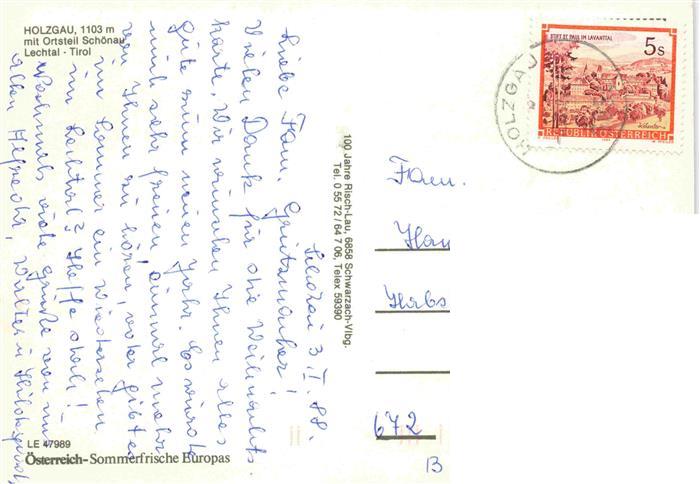 HOLZGAU, 1103 m
mit Ortsteil Schönau
Lechtal - Tirol
Schönau 3.I.88.
Liebe Fam.
Vielen Dank für die Weihnachts-
karte, Wir wünschen Ihnen alles
Gute zum neuen Jahr. Es würde
mich sehr freuen, einmal mehr
von Ihnen zu hören, oder gibt es
im Sommer ein Wiedersehen
im Lechtal? Hoffe stark!
Nochmals viele Grüße von uns
allen
LE 47989
Österreich-Sommerfrische Europas
100 Jahre Risch-Lau, 6858 Schwarzach-Vlbg.
Tel. 0 55 72/64 7 06, Telex 59390
STIFT ST. PAUL IM LAVANTTAL
5s
REPUBLIK ÖSTERREICH
HOLZGAU
Fam.
Han
672
B